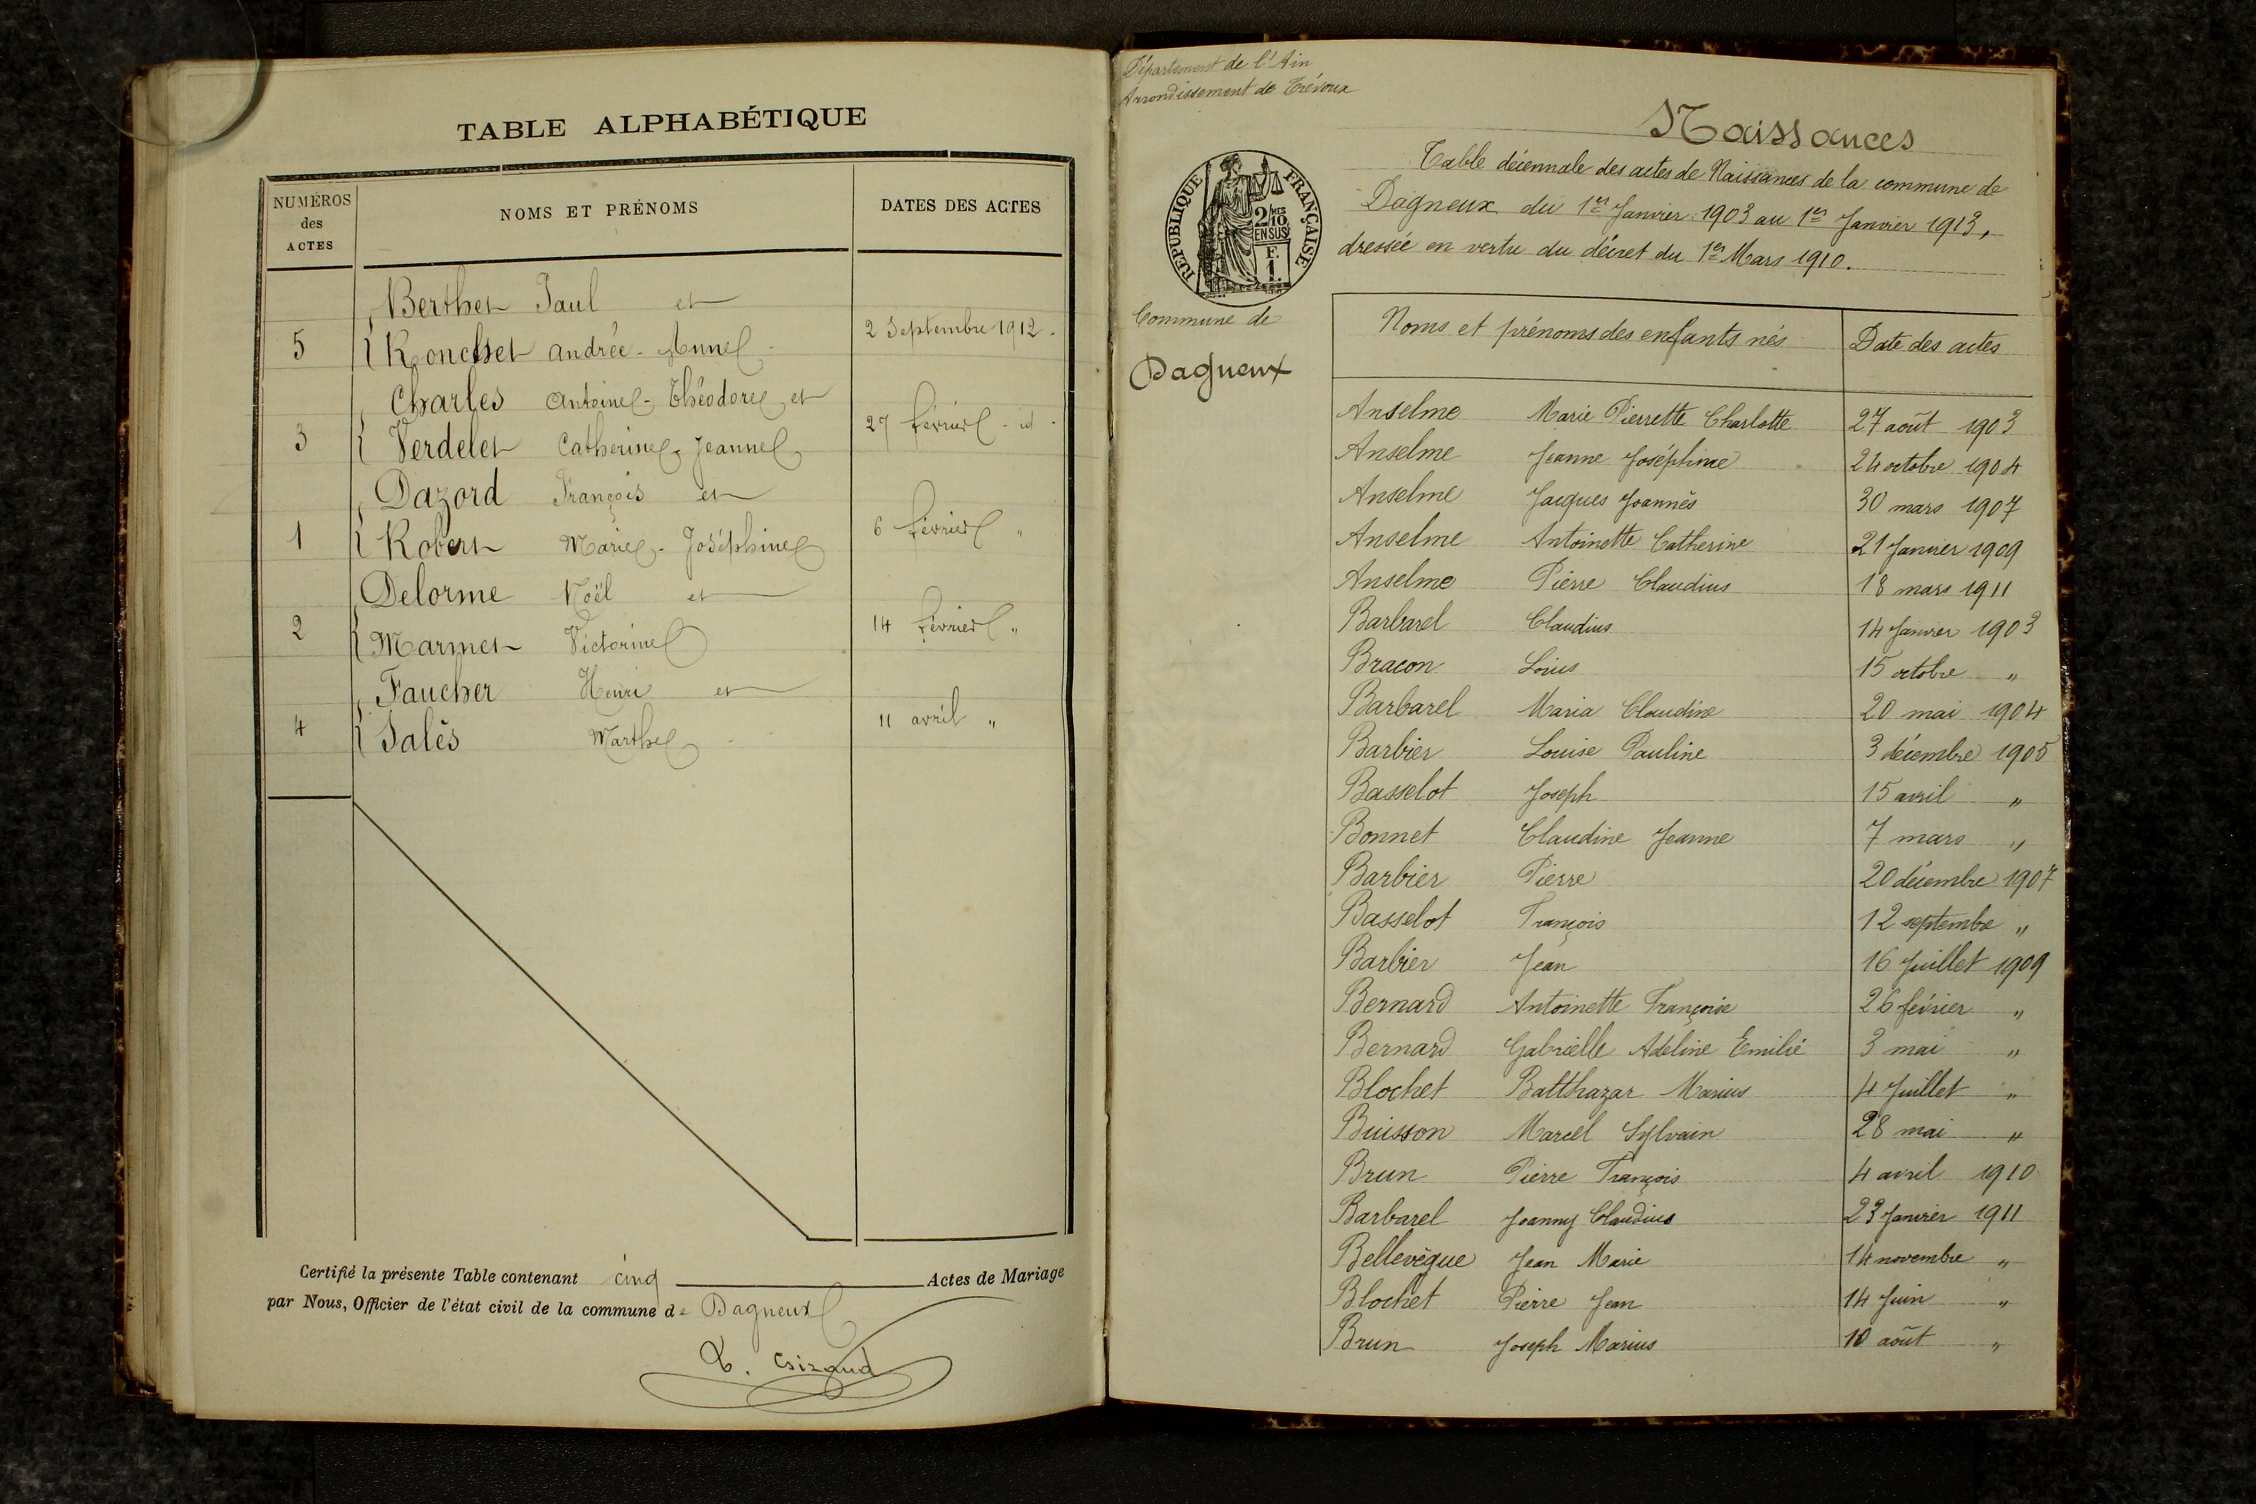 TABLE ALPHABÉTIQUE
NUMÉROS des ACTES NOMS ET PRÉNOMS DATES DES ACTES
Berthet Paul et
5 Ronchet Andrée - Anne 2 Septembre 1912.
Charles Antoine - Théodore et
3 Verdelet Catherine - Jeanne 27 février - id -
Dazord François et
1 Robert Marie - Joséphine 6 février "
Delorme Noël et
2 Marmet Victorine 14 février "
Faucher Henri et
4 Salès Marthe 11 avril "
Certifié la présente Table contenant cinq Actes de Mariage
par Nous, Officier de l'état civil de la commune de Dagneux
Département de l'Ain
Arrondissement de Trévoux
Naissances
Table décennale des actes de Naissances de la commune de
Dagneux du 1er Janvier 1903 au 1er Janvier 1913,
dressée en vertu du décret du 1er Mars 1910.
RÉPUBLIQUE FRANÇAISE
2/10MES
EN SUS
E.
1.
Commune de
Dagneux
Noms et prénoms des enfants nés Date des actes
Anselme Marie Pierrette Charlotte 27 août 1903
Anselme Jeanne Joséphine 24 octobre 1904
Anselme Jacques Joannès 30 mars 1907
Anselme Antoinette Catherine 21 Janvier 1909
Anselme Pierre Claudius 18 mars 1911
Barbarel Claudius 14 Janvier 1903
Bracon Louis 15 octobre "
Barbarel Maria Claudine 20 mai 1904
Barbier Louise Pauline 3 décembre 1905
Basselot Joseph 15 avril "
Bonnet Claudine Jeanne 7 mars "
Barbier Pierre 20 décembre 1907
Basselot François 12 septembre "
Barbier Jean 16 Juillet 1909
Bernard Antoinette Françoise 26 février "
Bernard Gabrielle Adeline Emilie 3 mai "
Blochet Balthazar Marius 4 Juillet "
Buisson Marcel Sylvain 28 mai "
Brun Pierre François 4 avril 1910
Barbarel Joanny Claudius 23 Janvier 1911
Bellevègue Jean Marie 14 novembre "
Blochet Pierre Jean 14 Juin "
Brun Joseph Marius 10 août "